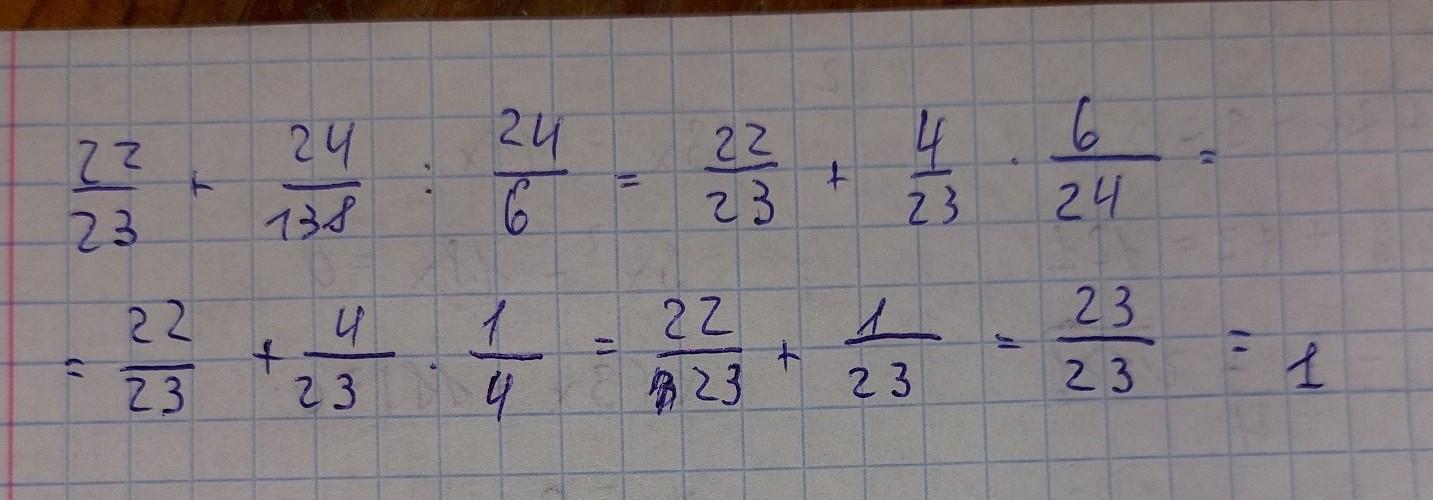 22/23 + 24/138 : 24/6 = 22/23 + 4/23 · 6/24 =
= 22/23 + 4/23 · 1/4 = 22/23 + 1/23 = 23/23 = 1